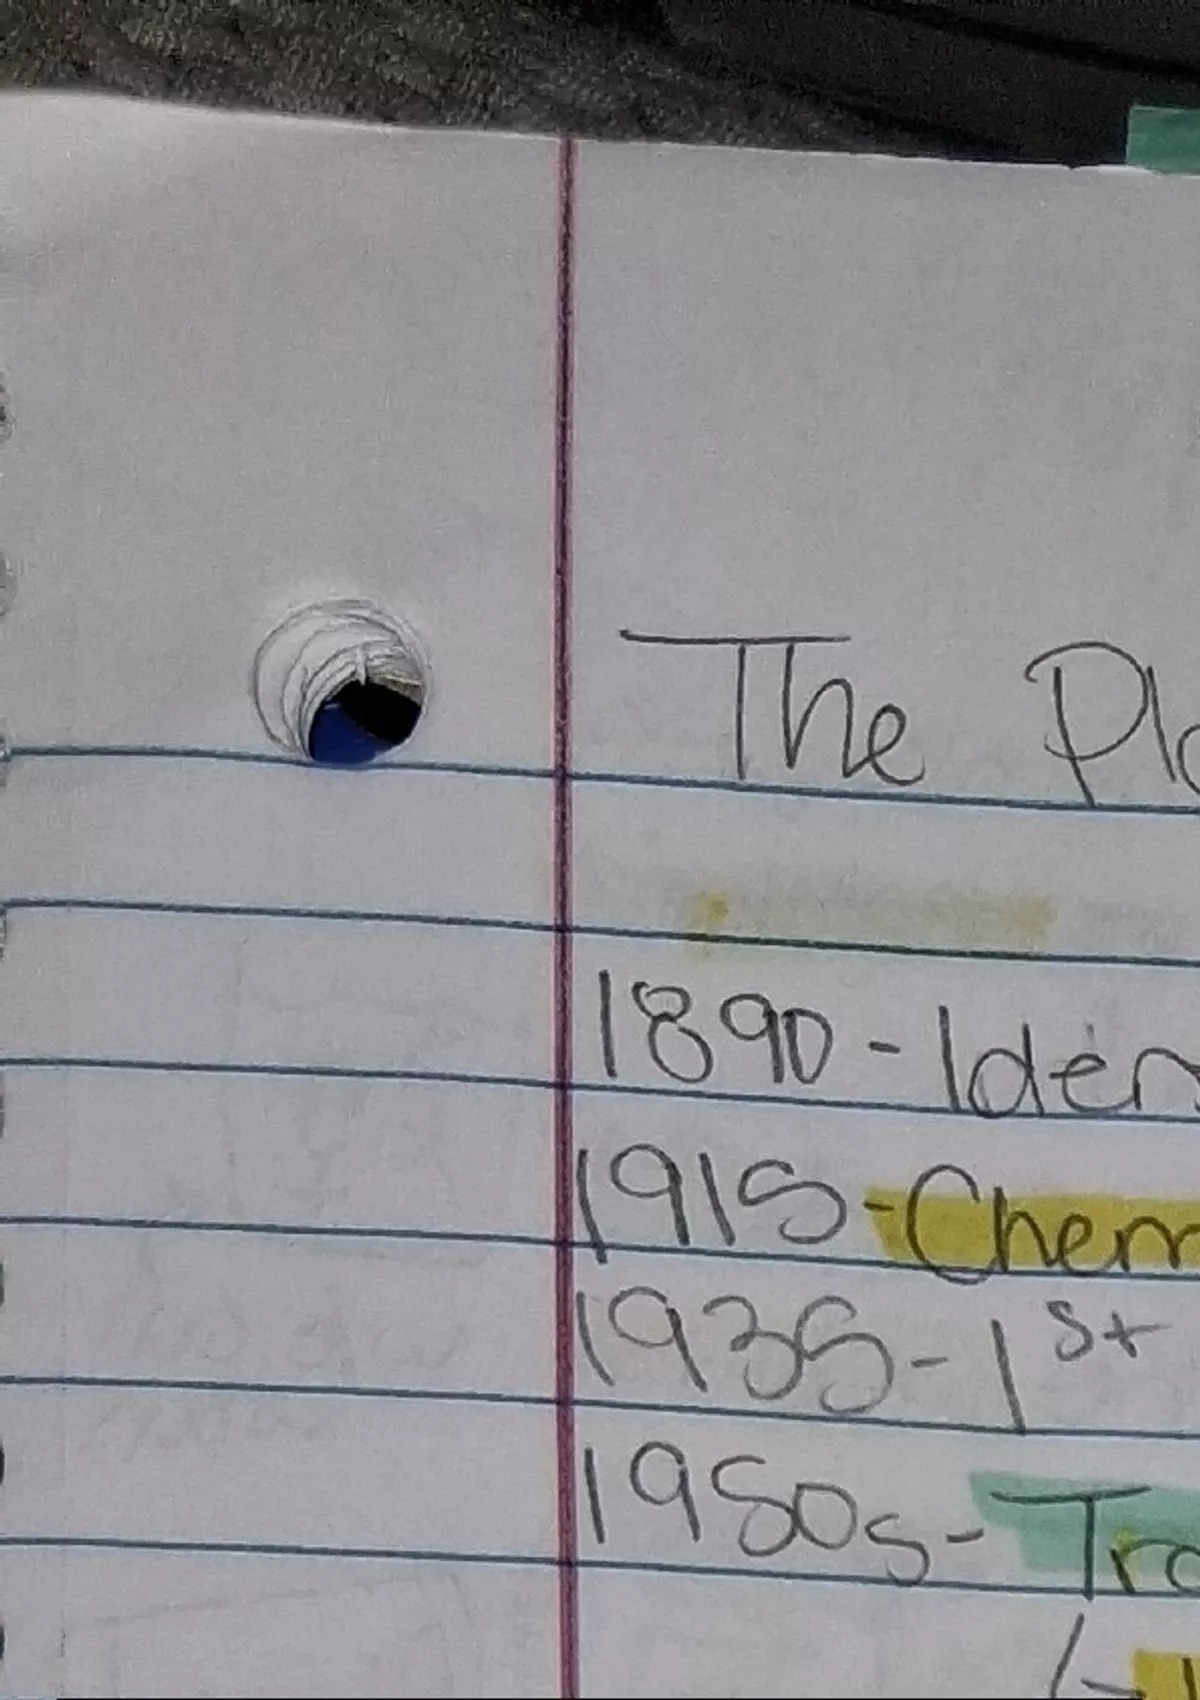 The Pl
1890 - Iden
1915 - Chem
1935 - 1st
1950s - Tra